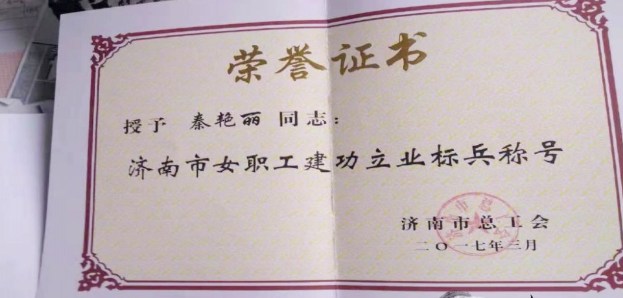 荣誉证书
授予 秦艳丽 同志：
济南市女职工建功立业标兵称号
济南市总工会
二〇一七年三月